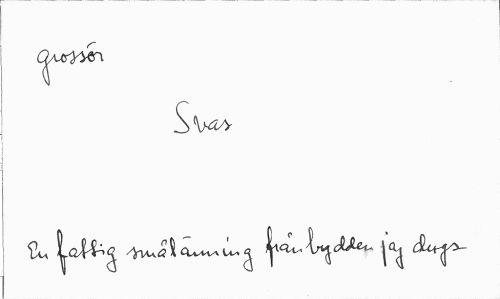 grossör
Svas
En fattig smålänning från bygden jag